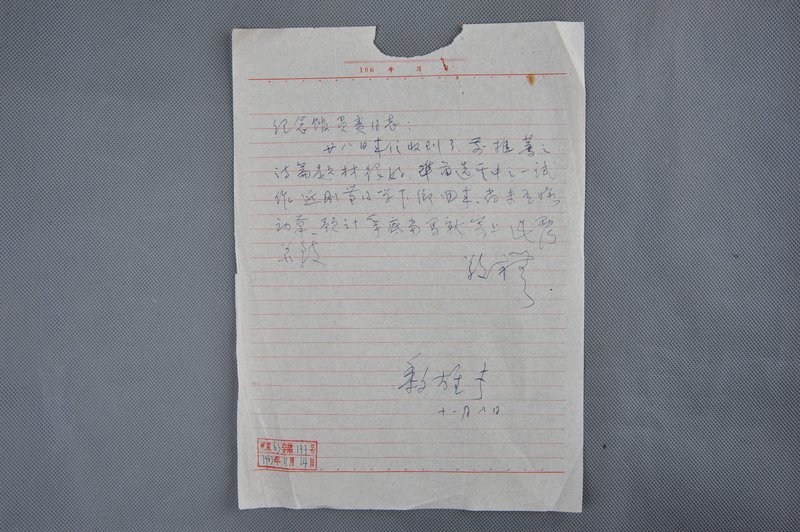 196 年 月 日
纪念馆负责同志：
廿八日来信收到了，前推荐之
诗篇题材很好，准备选其中之一试
作。近刚带同学下乡回来，尚未
动笔，预计年底前写就寄上。
敬礼
十一月八日
63 号
1963年11月14日